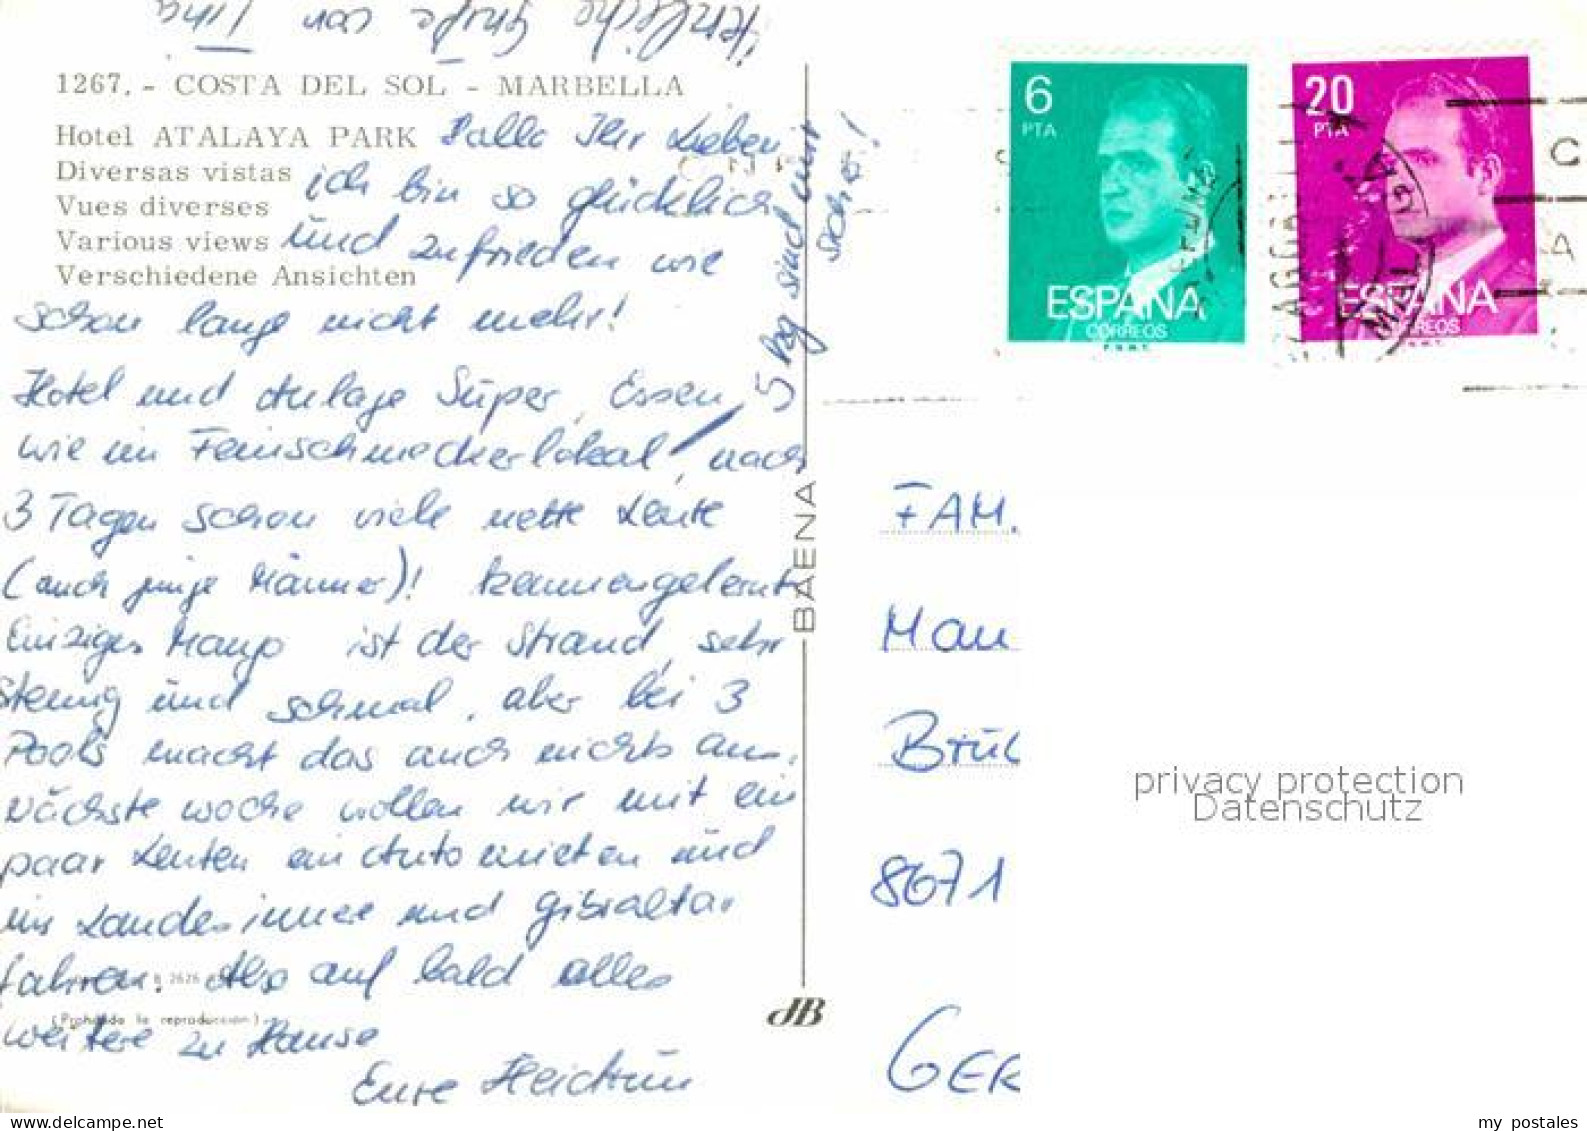 Herzliche Grüße von Tina
1267. - COSTA DEL SOL - MARBELLA
Hotel ATALAYA PARK
Diversas vistas
Vues diverses
Various views
Verschiedene Ansichten
Hallo Ihr Lieben
ich bin so glücklich
und zufrieden wie
schon lange nicht mehr!
Hotel und Anlage Super, Essen,
wie im Feinschmeckerlokal, nach
3 Tagen schon viele nette Leute
(auch junge Männer)! kennengelernt
Einziges Manko ist der Strand, sehr
steinig und schmal, aber bei 3
Pools macht das auch nichts aus.
Nächste Woche wollen wir mit ein
paar Leuten ein Auto mieten und
ins Landesinnere und Gibraltar
fahren. Also auf bald alles
weitere zu Hause
Eure Heidrun
5 kg sind mir
sicher!
(Prohibida la reproducción)
BAENA
JB
6
PTA
ESPAÑA
CORREOS
F.N.M.T.
20
PTA
ESPAÑA
CORREOS
F.N.M.T.
FAM.
Mau
Brüc
8671
GER
privacy protection
Datenschutz
delcampe.net
my postales